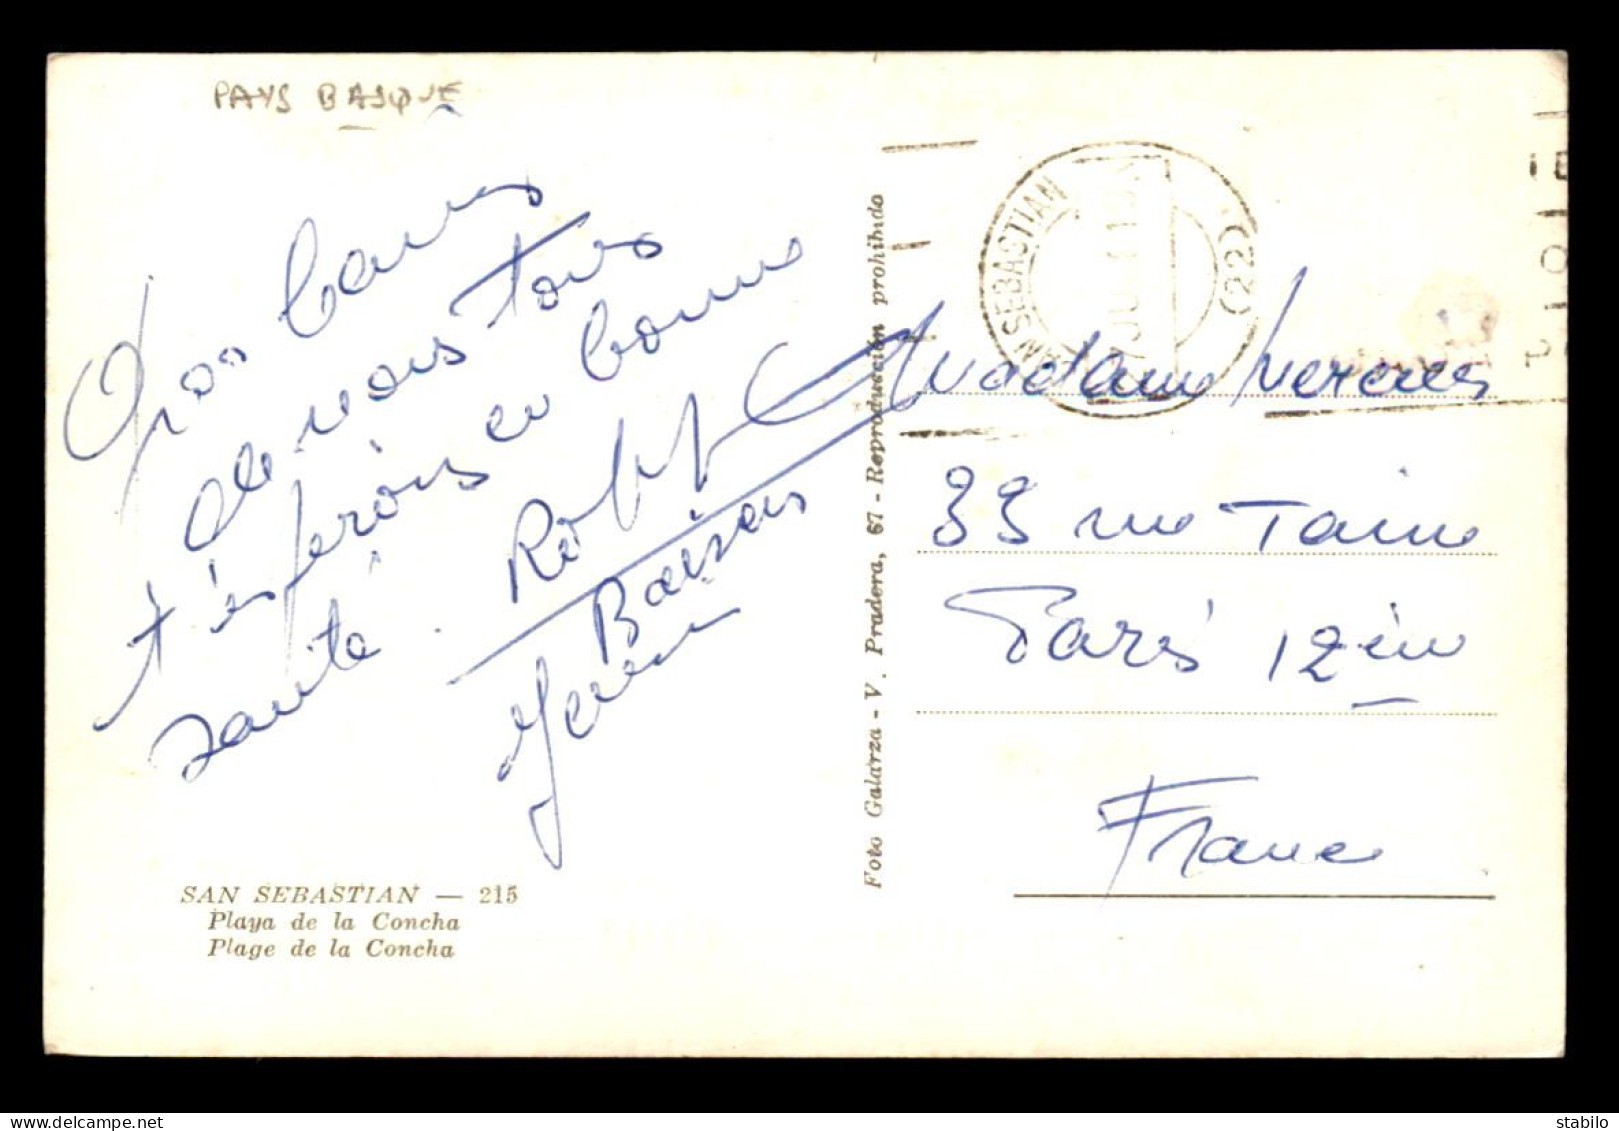 PAYS BASQUE
Gros baisers
de nous tous
t'espérons en bonne
santé.
Baisers
SAN SEBASTIAN — 215
Playa de la Concha
Plage de la Concha
Foto Galarza - V. Pradera, 67 - Reproducción prohibido
SAN SEBASTIAN
(22)
Madame
33 rue Taine
Paris 12èm
France
stabilo